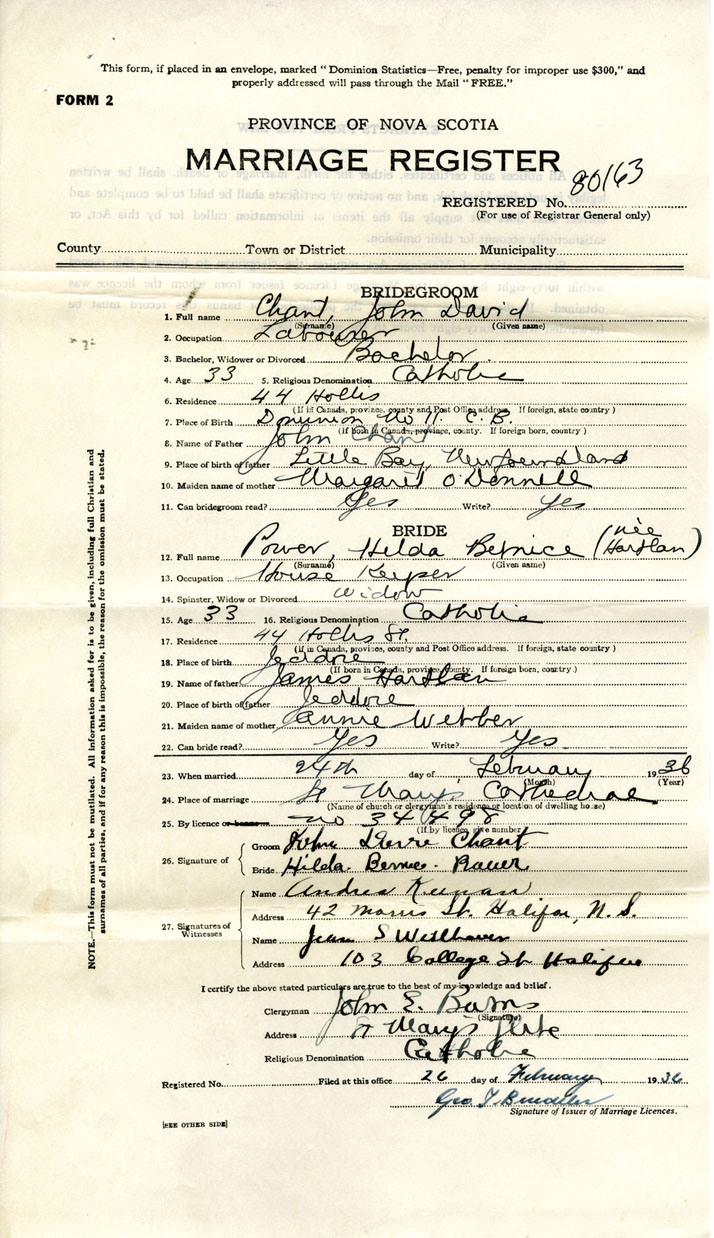 This form, if placed in an envelope, marked “ Dominion Statistics—Free, penalty for improper use $300,” and
properly addressed will pass through the Mail “ FREE.”
FORM 2
PROVINCE OF NOVA SCOTIA
MARRIAGE REGISTER
REGISTERED No. 80163
(For use of Registrar General only)
County Town or District Municipality
BRIDEGROOM
1. Full name Chant, John David
(Surname) (Given name)
2. Occupation Labourer
3. Bachelor, Widower or Divorced Bachelor
4. Age 33 5. Religious Denomination Catholic
6. Residence 44 Hollis
(If in Canada, province, county and Post Office address. If foreign, state country )
7. Place of Birth Dominion No 11. C. B.
(If born in Canada, province, county. If foreign born, country )
8. Name of Father John Chant
9. Place of birth of father Little Bay, Newfoundland
10. Maiden name of mother Margaret O'Donnell
11. Can bridegroom read? Yes Write? Yes
BRIDE
12. Full name Power, Hilda Bernice (née Hartlan)
(Surname) (Given name)
13. Occupation House Keeper
14. Spinster, Widow or Divorced Widow
15. Age 33 16. Religious Denomination Catholic
17. Residence 44 Hollis St.
(If in Canada, province, county and Post Office address. If foreign, state country )
18. Place of birth Jeddore
(If born in Canada, province, county. If foreign born, country.)
19. Name of father James Hartlan
20. Place of birth of father Jeddore
21. Maiden name of mother Annie Webber
22. Can bride read? Yes Write? Yes
23. When married 24th day of February 1936
(Month) (Year)
24. Place of marriage St Mary's Cathedral
(Name of church or clergyman's residence or location of dwelling house)
25. By licence or banns no 34498
(If by licence, give number)
26. Signature of
Groom John Chant
Bride Hilda Bernice Power
27. Signatures of Witnesses
Name Andrew
Address 42 Morris St. Halifax, N. S.
Name Jean S
Address 103 College St Halifax
I certify the above stated particulars are true to the best of my knowledge and belief.
Clergyman John E. Burns
(Signature)
Address St Mary's Glebe
Religious Denomination Catholic
Registered No. Filed at this office 26 day of February 1936
Geo T.
Signature of Issuer of Marriage Licences.
[SEE OTHER SIDE]
NOTE.—This form must not be mutilated. All information asked for is to be given, including full Christian and
surnames of all parties, and if for any reason this is impossible, the reason for the omission must be stated.